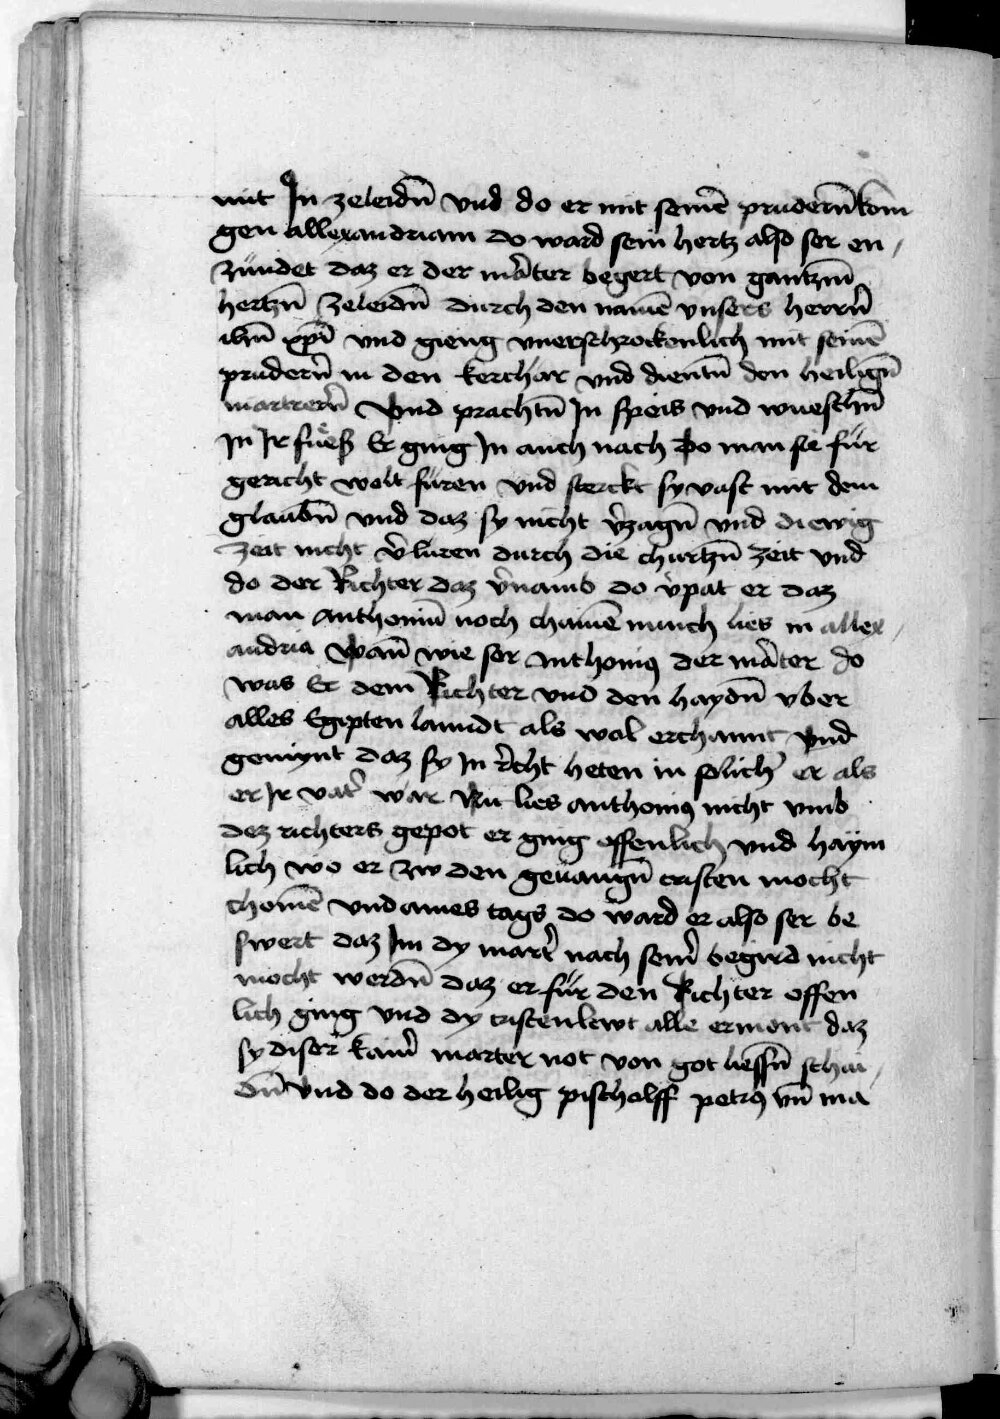 mit In zeleidn̄ vnd do er mit seinē prudern̄ kom
gen allexandriam do ward sein hertz also ser en /
zündet daz er der mạ̈ter begert von gantzm̄
hertzn̄ zeleidn̄ durch den namē vnsers herrn̄
ihū xp̄i vnd gieng vnerschrockenlich mit seinē
prudern̄ in den kerchär vnd dientn̄ den heilign̄
martrern̄ Vnd prachtn̄ In speis vnd wueschn̄
In Ir fuͤeß Er ging In auch nach Do man sie für
gericht wolt füren vnd sterckt sy vast mit dem
glaubn̄ vnd daz sy nicht v̄zagn̄ vnd die ewig
zeit nicht v̄luren durch die churtzn̄ zeit vnd
do der Richter daz v̄namb do v̄pat er daz
man anthoniū noch chainē münch lies in allex /
andria Wan̄ wie ser Anthoniꝰ der mạ̈ter do
was Er dem Richter vnd den haydn̄ vber
alles Egipten lanndt als wol erchannt Vnd
gemynt daz sy In r̄cht heten in solich̄ er als
er Ir vat̄ wär Nu lies anthoniꝰ nicht vmb
dez richters gepot er ging offenlich vnd haym
lich wo er zw den geuangn̄ cristen mocht
chomē vnd aines tags do ward er also ser be
swert daz Im dy mart̄ nach sein̄ begird nicht
mocht werdn̄ daz er für den Richter offen
lich ging vnd dy cristenlewt alle ermont daz
sy diser kain̄ marter not von got liessn̄ schai /
dn̄ Vnd do der heilig pischolff petrꝰ vn̄ ma